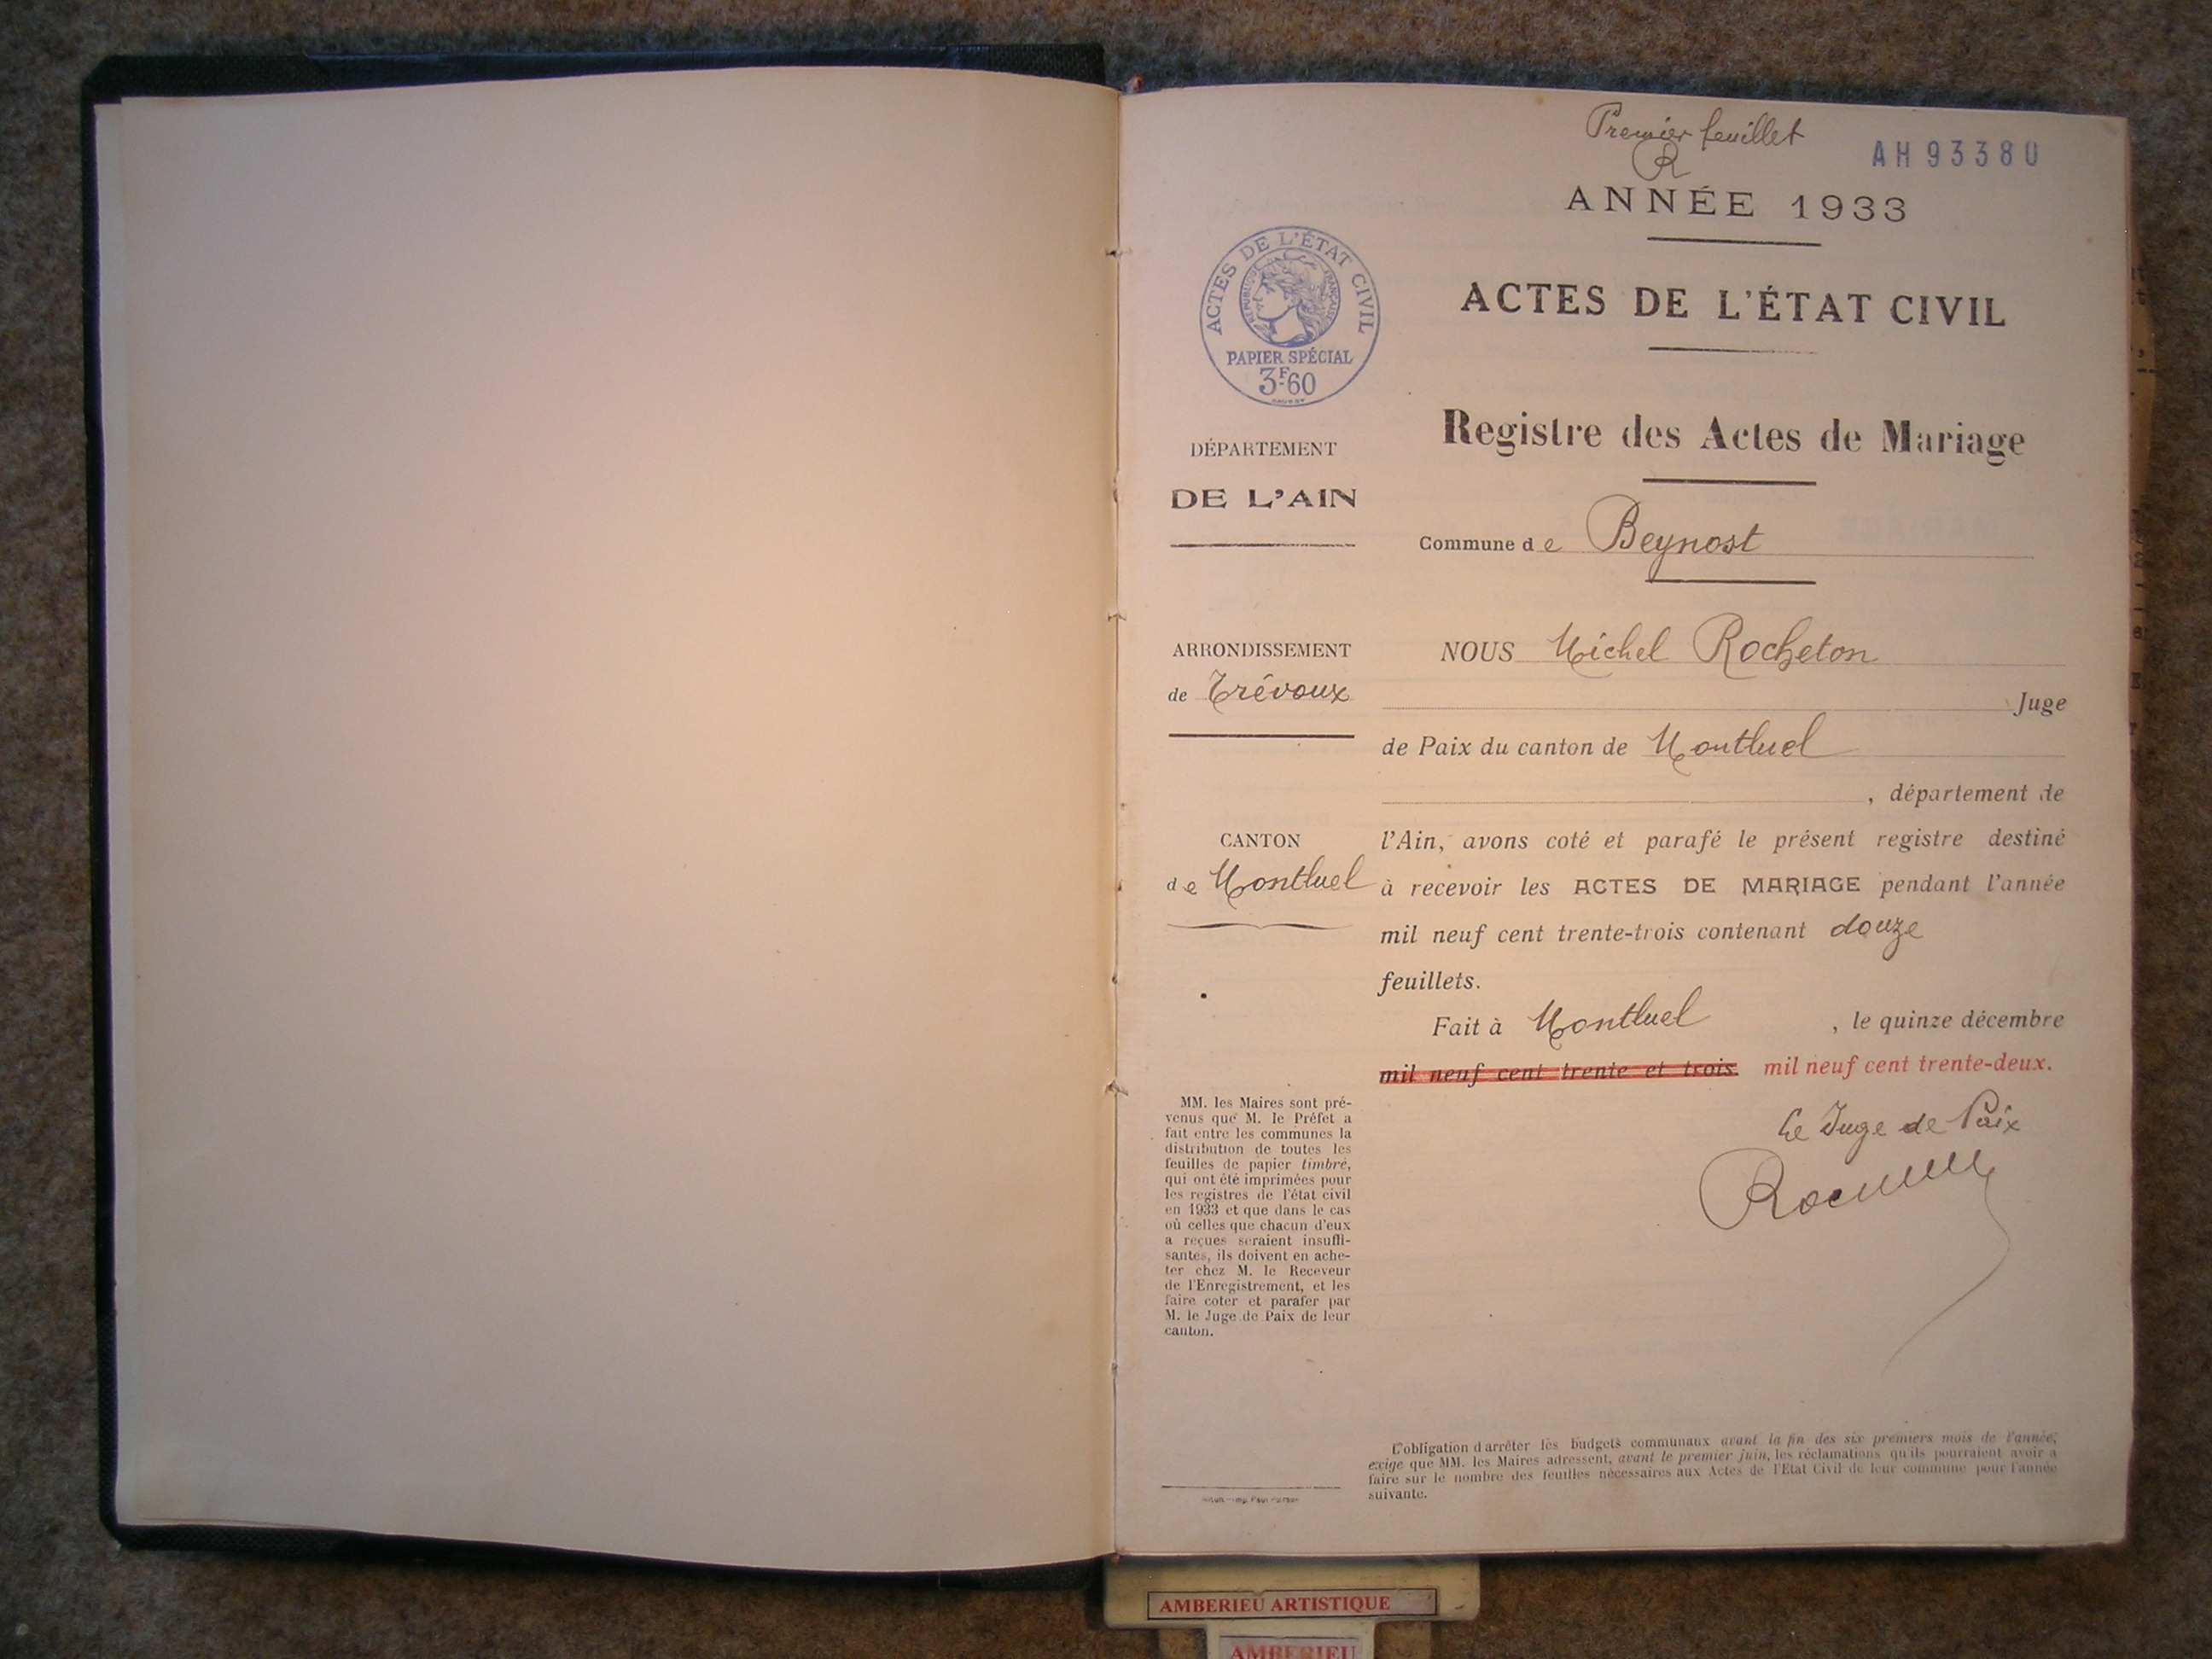 Premier feuillet
R
AH 93380
ANNÉE 1933
ACTES DE L'ÉTAT CIVIL
RÉPUBLIQUE FRANÇAISE
PAPIER SPÉCIAL
3F.60
ACTES DE L'ÉTAT CIVIL
Registre des Actes de Mariage
Commune de Beynost
DÉPARTEMENT
DE L'AIN
ARRONDISSEMENT
de Trévoux
CANTON
de Montluel
NOUS Michel Rocheton
Juge
de Paix du canton de Montluel
, département de
l'Ain, avons coté et parafé le présent registre destiné
à recevoir les ACTES DE MARIAGE pendant l'année
mil neuf cent trente-trois contenant douze
feuillets.
Fait à Montluel , le quinze décembre
mil neuf cent trente et trois mil neuf cent trente-deux.
Le Juge de Paix
MM. les Maires sont pré-
venus que M. le Préfet a
fait entre les communes la
distribution de toutes les
feuilles de papier timbré,
qui ont été imprimées pour
les registres de l'état civil
en 1933 et que dans le cas
où celles que chacun d'eux
a reçues seraient insuffi-
santes, ils doivent en ache-
ter chez M. le Receveur
de l'Enregistrement, et les
faire coter et parafer par
M. le Juge de Paix de leur
canton.
L'obligation d'arrêter les budgets communaux avant la fin des six premiers mois de l'année,
exige que MM. les Maires adressent, avant le premier juin, les réclamations qu'ils pourraient avoir à
faire sur le nombre des feuilles nécessaires aux Actes de l'Etat Civil de leur commune pour l'année
suivante.
AMBERIEU ARTISTIQUE
AMBERIEU